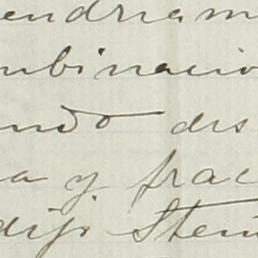 endriam
mbinacio
ndo des
a y frac
dijo Stein